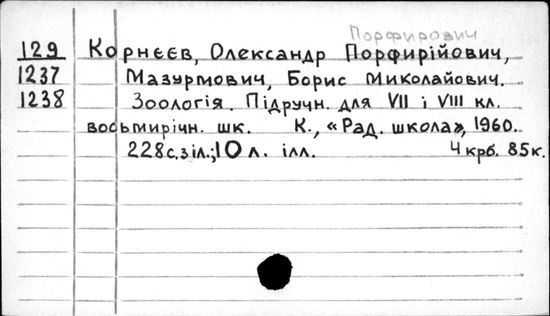 Порфирович
129 Корнєєв, Олександр Порфирійович,
1237 Мазурмович, Борис Миколайович.
1238 Зоологія. Підручн. для VII і VIII кл.
восьмирічн. шк. К., «Рад. школа», 1960.
228с.з іл.; 10 л. ілл. 4 крб. 85 к.